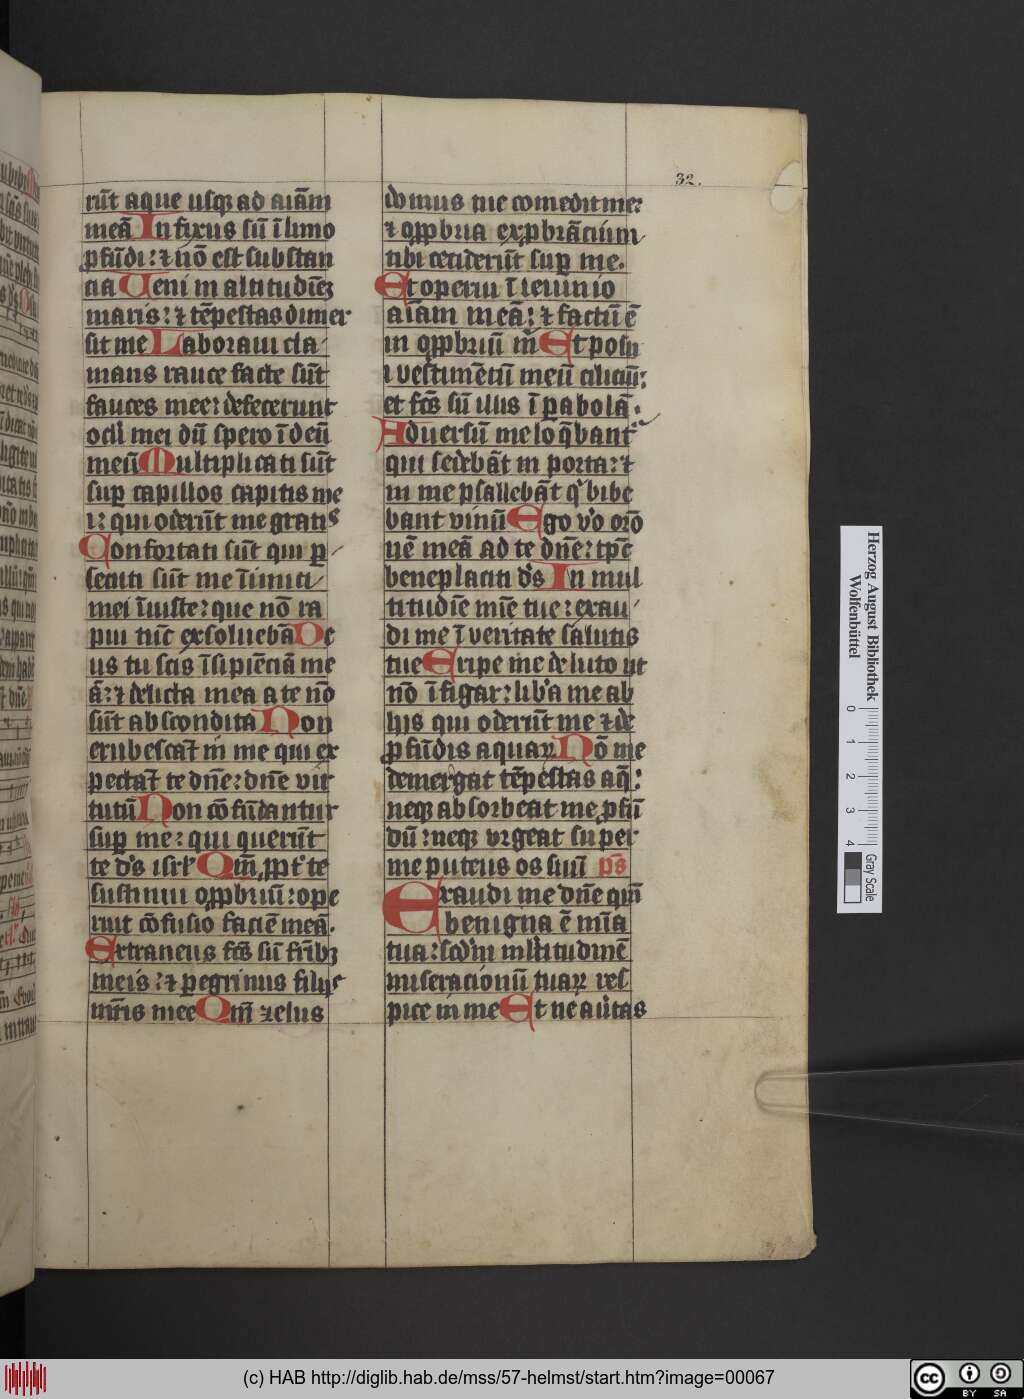 32.
rūt aque usq; ad aīam
meā In fixus sū ī limo
pfūdi: ⁊ nō est substan
cia Ueni in altitudinē
maris: ⁊ tēpestas dimer
sit me Laboraui cla
mans rauce facte sūt
fauces mee: defecerunt
ocli mei dū spero ī deū
meū Multiplicati sūt
sup capillos capitis me
i: qui oderūt me gratis
Confortati sūt qui p
secuti sūt me īimici
mei īiuste: que nō ra
pui tūc exsoluebā De
us tu scis īsipiēciā me
ā: ⁊ delicta mea a te nō
sūt abscondita Non
erubescāt in me qui ex
pectāt te dn̄e: dn̄e vir
tutū Non cōfūdantur
sup me: qui querūt
te ds isrl Qm̄ ppt te
sustinui opp̄briū: ope
ruit cōfusio faciē meā.
Extraneus fcs sū frībꝫ
meis: ⁊ pegrinus filijs
mr̄is mee Qm̄ zelus
domus tue comedit me:
⁊ opp̄bria exp̄brāciū
tibi ceciderūt sup me.
Et operui ī ieiunio
aīam meā: ⁊ factū ē
in opp̄briū m̄ Et posu
i vestimētū meū ciliciū:
et fcs sū illis ī pabolā.
Aduersū me loq̄bant
qui sedebāt in porta: ⁊
in me psallebāt q bibe
bant vinū Ego vo orō
nē meā ad te dn̄e: tp̄c
beneplaciti ds In mul
titudīe mīe tue: exau
di me ī veritate salutis
tue Eripe me de luto ut
nō īfigar: liba me ab
hijs qui oderūt me ⁊ de
pfūdis aquaꝝ Nō me
demergat tēpestas aq̄:
neqꝫ absorbeat me pfū
dū: neqꝫ vrgeat super
me puteus os suū ps
Exaudi me dn̄e qm̄
benigna ē mīa
tua: scdm mltitudinē
miseracionū tuaꝝ res
pice in me Et ne au̇tas
Herzog August Bibliothek
Wolfenbüttel
0 1 2 3 4
Gray Scale
(c) HAB http://diglib.hab.de/mss/57-helmst/start.htm?image=00067
cc BY SA